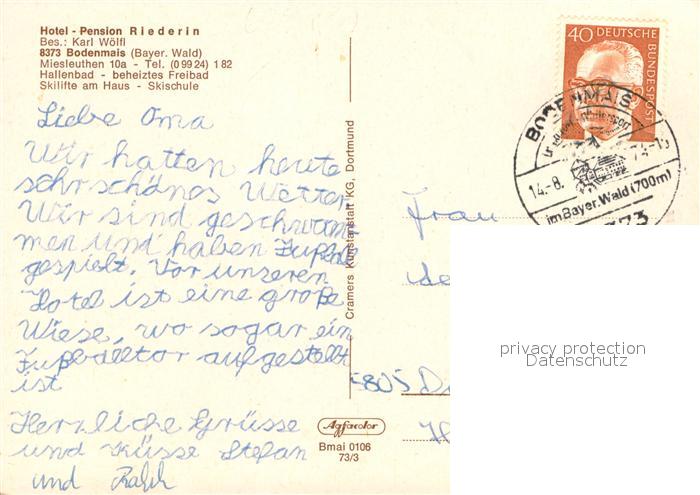 Hotel - Pension Riederin
Bes.: Karl Wölfl
8373 Bodenmais (Bayer. Wald)
Miesleuthen 10a - Tel. (0 99 24) 1 82
Hallenbad - beheiztes Freibad
Skilifte am Haus - Skischule
Liebe Oma
Wir hatten heute
sehr schönes Wetter
Wir sind geschwom
men und haben Fußball
gespielt. Vor unseren
Hotel ist eine große
Wiese, wo sogar ein
Fußballtor aufgestellt
ist
Herzliche Grüsse
und Küsse Stefan
und Ralph
Cramers Kunstanstalt KG, Dortmund
Agfacolor
Bmai 0106
73/3
40 DEUTSCHE
BUNDESPOST
BODENMAIS
14.-8.
im Bayer. Wald (700m)
Frau
5805
privacy protection
Datenschutz